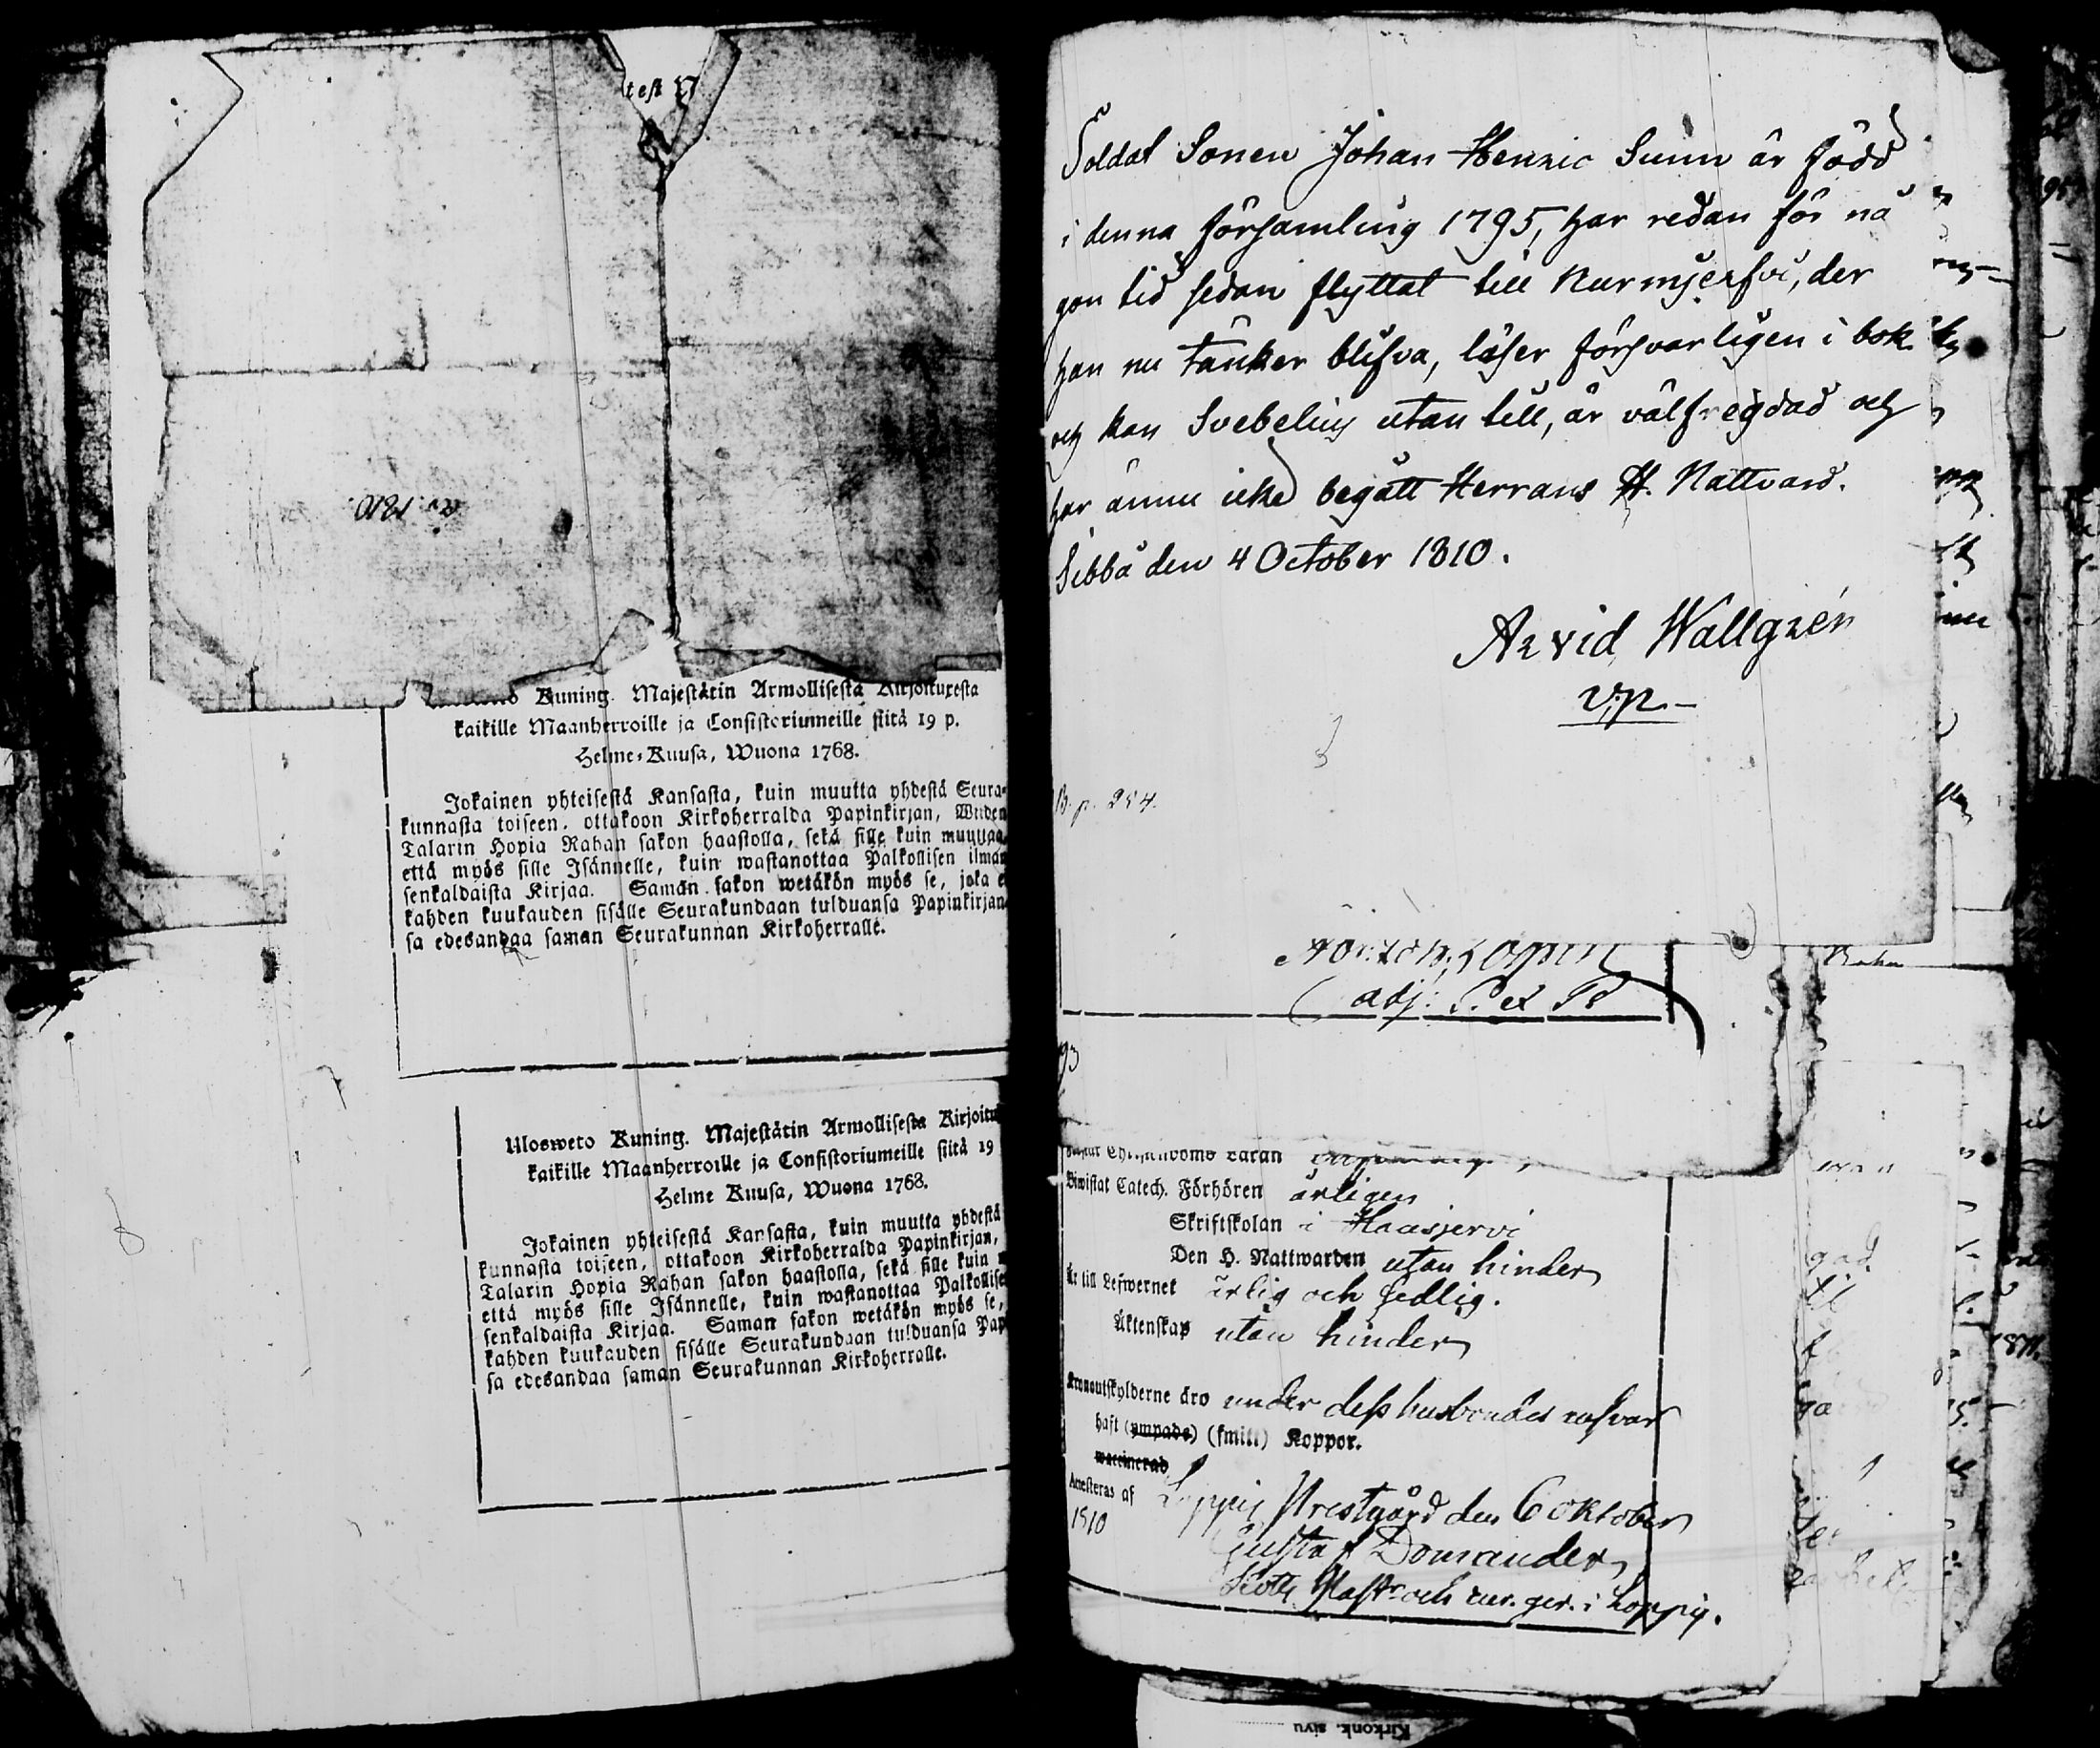 test
Kuning. Majestätin Armollisesta Kirjoituxesta
kaikille Maanherroille ja Consistoriumeille siitä 19 p.
Helme-Kuusa, Wuona 1768.
Jokainen yhteisestä Kansasta, kuin muutta yhdestä Seura-
kunnasta toiseen, ottakoon Kirkoherralda Papinkirjan, Wiiden
Talarin Hopia Rahan sakon haastolla, sekä sille kuin muuttaa,
että myös sille Isännelle, kuin wastanottaa Palkollisen ilman
senkaldaista Kirjaa. Saman sakon wetäkön myös se, joka e
kahden kuukauden sisälle Seurakundaan tulduansa Papinkirjan-
sa edesandaa saman Seurakunnan Kirkoherralle.
Ulosweto Kuning. Majestätin Armollisesta Kirjoitu
kaikille Maanherroille ja Consistoriumeille siitä 19
Helme Kuusa, Wuona 1768.
Jokainen yhteisestä Kansasta, kuin muutta yhdestä
kunnasta toiseen, ottakoon Kirkoherralda Papinkirjan,
Talarin Hopia Rahan sakon haastolla, sekä sille kuin m
että myös sille Isännelle, kuin wastanottaa Palkollise
senkaldaista Kirjaa. Saman sakon wetäkön myös se,
kahden kuukauden sisälle Seurakundaan tulduansa Pap
sa edesandaa saman Seurakunnan Kirkoherralle.
Soldat Sonen Johan Henric Sunn är född
i denna församling 1795, har redan för nå
gon tid sedan flyttat till Nurmijerfvi, der
han nu tänker blifva, läser försvarligen i bok
och kan Svebelius utan till, är välfregdad och
har ännu icke begått Herrans H. Nattvard.
Sibbå den 4 October 1810.
Arvid Wallgrén
v.p.
B. p. 254.
adj: P. et
93
Biwistat Catech. Förhören årligen
Skriftskolan i Hausjervi
Den H. Nattwarden utan hinder
Är till Lefwernet ärlig och sedlig.
Äktenskap utan hinder
Kronoutskylderne äro under dess husbondes ansvar
haft (ympade) (smitt) Koppor.
waccinerad
Attesteras af Loppis Prestgård den 6 oktober
1810
Gustaf Domander
Past. och cur. ger. i Loppis.
Kirkonk. sivu